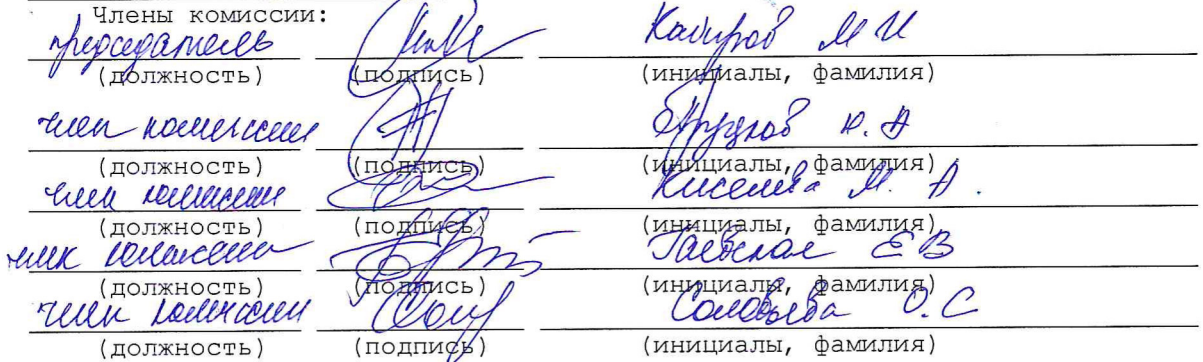 Члены комиссии:
председатель Кабиров М И
(должность) (подпись) (инициалы, фамилия)
член комиссии Прудков Ю. А
(должность) (подпись) (инициалы, фамилия)
член комиссии Киселева М. А.
(должность) (подпись) (инициалы, фамилия)
член комиссии Гаевская Е В
(должность) (подпись) (инициалы, фамилия)
член комиссии Соловьева О.С
(должность) (подпись) (инициалы, фамилия)